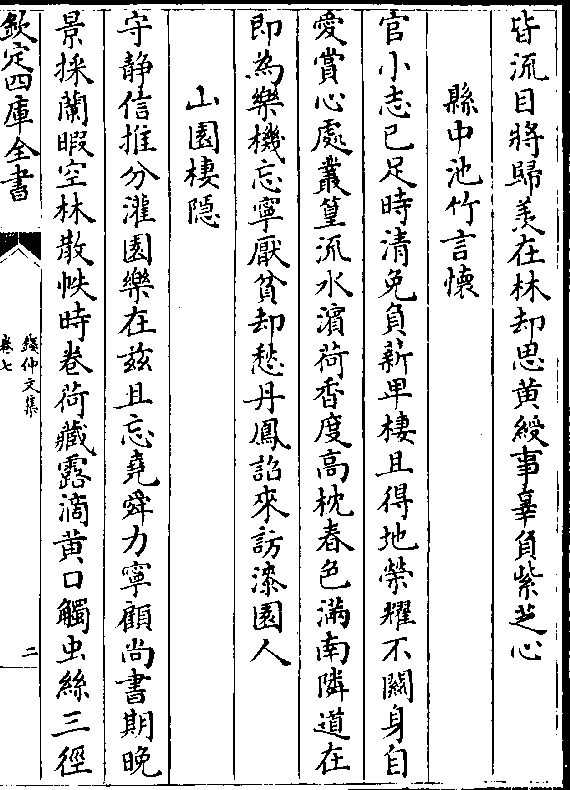 皆流目將歸羡在林却思黄綬事辜負紫芝心
縣中池竹言懷
官小志已足時清免負薪卑棲且得地榮耀不關身自
愛賞心處叢篁流水濱荷香度高枕春色滿南隣道在
即為樂機忘寧厭貧却愁丹鳳詔來訪漆園人
山園棲隠
守静信推分灌園樂在兹且忘堯舜力寧顧尚書期晚
景採蘭暇空林散帙時卷荷藏露滴黄口觸虫絲三徑
欽定四庫全書
錢仲文集
卷七
二